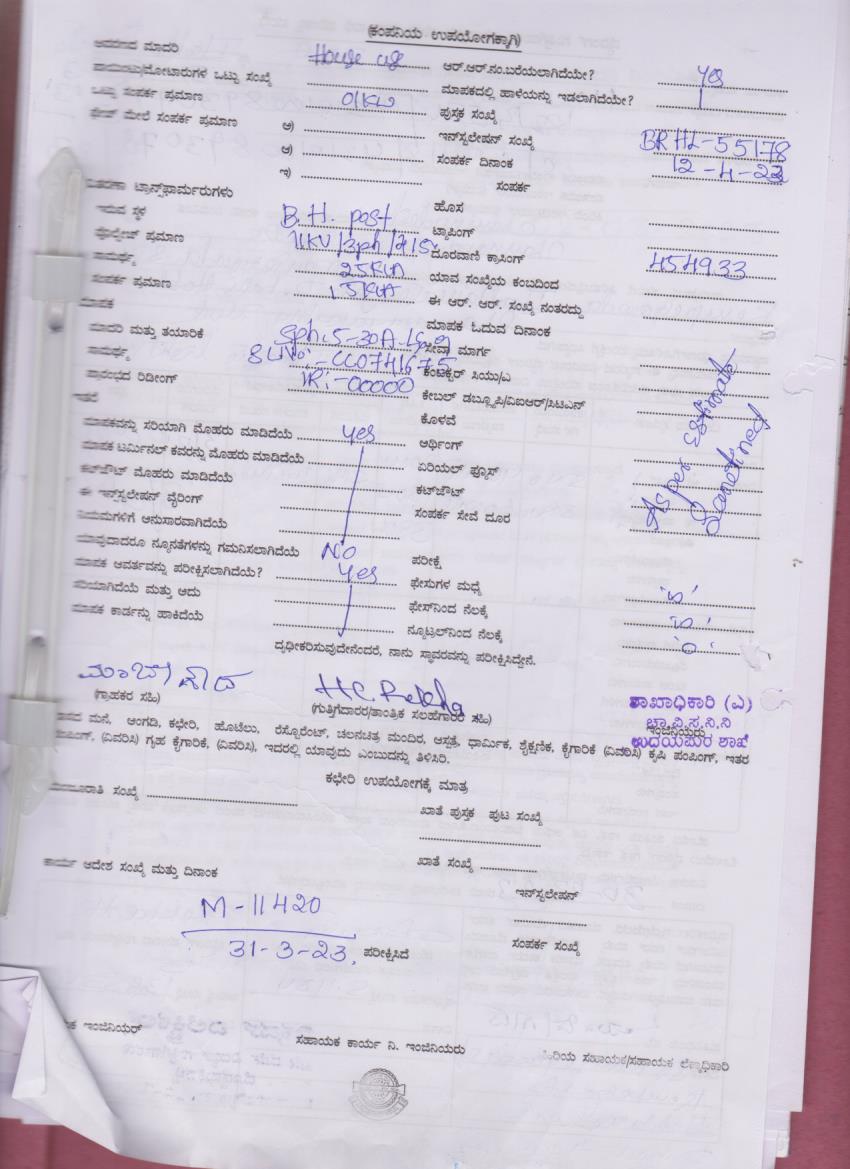 (ಕಂಪನಿಯ ಉಪಯೋಗಕ್ಕಾಗಿ)
ಆವರಣದ ಮಾದರಿ House use ಆರ್.ಆರ್.ನಂ.ಬರೆಯಲಾಗಿದೆಯೇ? yes
ಪಾಯಿಂಟು/ಮೋಟಾರುಗಳ ಒಟ್ಟು ಸಂಖ್ಯೆ ಮಾಪಕದಲ್ಲಿ ಹಾಳೆಯನ್ನು ಇಡಲಾಗಿದೆಯೇ?
ಒಟ್ಟು ಸಂಪರ್ಕ ಪ್ರಮಾಣ 01KW ಪುಸ್ತಕ ಸಂಖ್ಯೆ
ಫೇಸ್ ಮೇಲೆ ಸಂಪರ್ಕ ಪ್ರಮಾಣ ಅ) ಇನ್‌ಸ್ಟಲೇಷನ್ ಸಂಖ್ಯೆ BRHL-55178
ಆ) ಸಂಪರ್ಕ ದಿನಾಂಕ 12-4-23
ಇ) ಸಂಪರ್ಕ
ವಿತರಣಾ ಟ್ರಾನ್ಸ್‌ಫಾರ್ಮರುಗಳು
ಇರುವ ಸ್ಥಳ B.H. post ಹೊಸ
ವೋಲ್ಟೇಜ್ ಪ್ರಮಾಣ 11KV/3ph/415v ಟ್ಯಾಪಿಂಗ್
ಸಾಮರ್ಥ್ಯ 25KVA ದೂರವಾಣಿ ಕ್ರಾಸಿಂಗ್
ಸಂಪರ್ಕ ಪ್ರಮಾಣ 15KVA ಯಾವ ಸಂಖ್ಯೆಯ ಕಂಬದಿಂದ 454933
ಮಾಪಕ ಈ ಆರ್. ಆರ್. ಸಂಖ್ಯೆ ನಂತರದ್ದು
ಮಾಪಕ ಓದುವ ದಿನಾಂಕ
ಮಾದರಿ ಮತ್ತು ತಯಾರಿಕೆ 5-30A ಸೇವಾ ಮಾರ್ಗ
ಸಾಮರ್ಥ್ಯ ಕಂಡಕ್ಟರ್ ಸಿಯು/ಎ
ಪ್ರಾರಂಭದ ರೀಡಿಂಗ್ IR:-00000 ಕೇಬಲ್ ಡಬ್ಲ್ಯೂಪಿ/ವಿಐಆರ್/ಸಿಟಿಎಸ್
ಇತರೆ ಕೊಳವೆ
ಮಾಪಕವನ್ನು ಸರಿಯಾಗಿ ಮೊಹರು ಮಾಡಿದೆಯೆ yes ಆರ್ಥಿಂಗ್
ಮಾಪಕ ಟರ್ಮಿನಲ್ ಕವರನ್ನು ಮೊಹರು ಮಾಡಿದೆಯೆ ಏರಿಯಲ್ ಫ್ಯೂಸ್
ಕಟ್‌ಔಟ್ ಮೊಹರು ಮಾಡಿದೆಯೆ ಕಟ್‌ಔಟ್
ಈ ಇನ್‌ಸ್ಟಲೇಷನ್ ವೈರಿಂಗ್ ಸಂಪರ್ಕ ಸೇವೆ ದೂರ
As per Estimate
Sanctined
ನಿಯಮಗಳಿಗೆ ಅನುಸಾರವಾಗಿದೆಯೆ
ಯಾವುದಾದರೂ ನ್ಯೂನತೆಗಳನ್ನು ಗಮನಿಸಲಾಗಿದೆಯೆ NO ಪರೀಕ್ಷೆ
ಮಾಪಕ ಆವರ್ತವನ್ನು ಪರೀಕ್ಷಿಸಲಾಗಿದೆಯೆ? yes ಫೇಸುಗಳ ಮಧ್ಯೆ
ಸರಿಯಾಗಿದೆಯೆ ಮತ್ತು ಅದು ಫೇಸ್‌ನಿಂದ ನೆಲಕ್ಕೆ
ಮಾಪಕ ಕಾರ್ಡನ್ನು ಹಾಕಿದೆಯೆ ನ್ಯೂಟ್ರಲ್‌ನಿಂದ ನೆಲಕ್ಕೆ '0'
ದೃಢೀಕರಿಸುವುದೇನೆಂದರೆ, ನಾನು ಸ್ಥಾವರವನ್ನು ಪರೀಕ್ಷಿಸಿದ್ದೇನೆ.
H.C. Rekha
(ಗ್ರಾಹಕರ ಸಹಿ) (ಗುತ್ತಿಗೆದಾರರ/ತಾಂತ್ರಿಕ ಸಲಹೆಗಾರರ ಸಹಿ) ಇಂಜಿನಿಯರು
ಶಾಖಾಧಿಕಾರಿ (ಎ)
ಚಾ.ವಿ.ಸ.ನಿ.ನಿ
ಉದಯಪುರ ಶಾಖೆ
ವಾಸದ ಮನೆ, ಅಂಗಡಿ, ಕಛೇರಿ, ಹೊಟೆಲು, ರೆಸ್ಟೋರೆಂಟ್, ಚಲನಚಿತ್ರ ಮಂದಿರ, ಆಸ್ಪತ್ರೆ, ಧಾರ್ಮಿಕ, ಶೈಕ್ಷಣಿಕ, ಕೈಗಾರಿಕೆ (ವಿವರಿಸಿ) ಕೃಷಿ ಪಂಪಿಂಗ್, ಇತರ
ಪಂಪಿಂಗ್, (ವಿವರಿಸಿ) ಗೃಹ ಕೈಗಾರಿಕೆ, (ವಿವರಿಸಿ), ಇದರಲ್ಲಿ ಯಾವುದು ಎಂಬುದನ್ನು ತಿಳಿಸಿರಿ.
ಕಛೇರಿ ಉಪಯೋಗಕ್ಕೆ ಮಾತ್ರ
ಸಂಖ್ಯೆ ಖಾತೆ ಪುಸ್ತಕ ಪುಟ ಸಂಖ್ಯೆ
ಕಾರ್ಯ ಆದೇಶ ಸಂಖ್ಯೆ ಮತ್ತು ದಿನಾಂಕ ಖಾತೆ ಸಂಖ್ಯೆ
ಇನ್‌ಸ್ಟಲೇಷನ್
M-11420
31-3-23 ಪರೀಕ್ಷಿಸಿದೆ ಸಂಪರ್ಕ ಸಂಖ್ಯೆ
ಇಂಜಿನಿಯರ್ ಸಹಾಯಕ ಕಾರ್ಯ ನಿ. ಇಂಜಿನಿಯರು ಹಿರಿಯ ಸಹಾಯಕ/ಸಹಾಯಕ ಲೆಕ್ಕಾಧಿಕಾರಿ